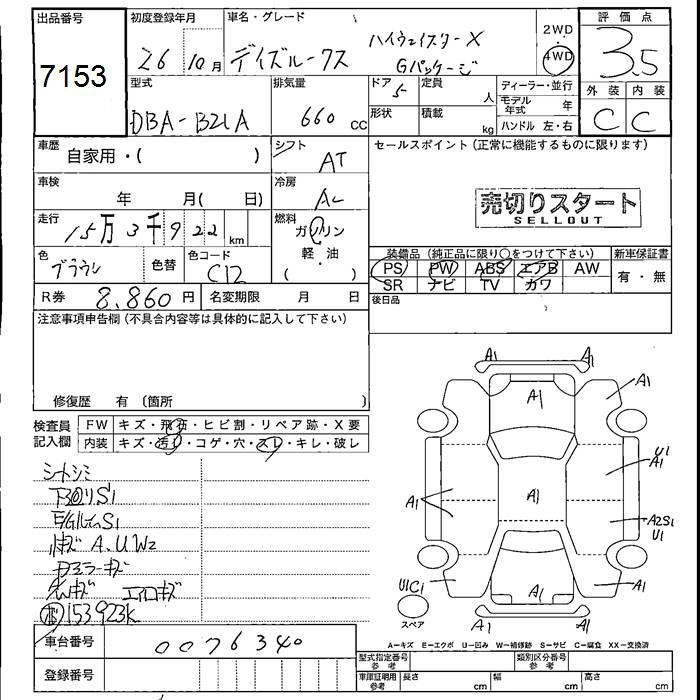 出品番号
7153
初度登録年月
26 10月
車名・グレード
デイズルークス
ハイウェイスターX
Gパッケージ
2WD
4WD
評価点
3.5
外装 内装
C C
型式
DBA-B21A
排気量
660 cc
ドア
5
形状
定員
人
積載
kg
ディーラー・並行
モデル年式 年
ハンドル 左・右
車歴
自家用・( )
シフト
AT
セールスポイント(正常に機能するものに限ります)
車検
年 月( 日)
冷房
AC
売切りスタート
SELLOUT
走行
15万3千922km
燃料
ガソリン
軽・油
( )
色
ブラウン
色替
色コード
C12
装備品(純正品に限り○をつけて下さい)
PS PW ABS エアB AW
SR ナビ TV カワ
新車保証書
有・無
R券
8.860円
名変期限 月 日
後日品
注意事項申告欄(不具合内容等は具体的に記入して下さい)
修復歴 有 〔箇所 〕
検査員
記入欄
FW キズ・飛石・ヒビ割・リペア跡・X要
内装 キズ・汚れ・コゲ・穴・スレ・キレ・破レ
シートシミ
下回りS1
E/GルームS1
A.UW2
ミラーキズ
エアロキズ
153923K
A1 A1
A1
A1
U1
A1
A1
A1
A2S1
U1
U1C1
A1
A1
スペア
A1 A1
A=キズ E=エクボ U=凹み W=補修跡 S=サビ C=腐食 XX=交換済
車台番号
0076340
登録番号
型式指定番号
参考
類別区分番号
参考
車庫証明用
参考
長さ cm
幅 cm
高さ cm